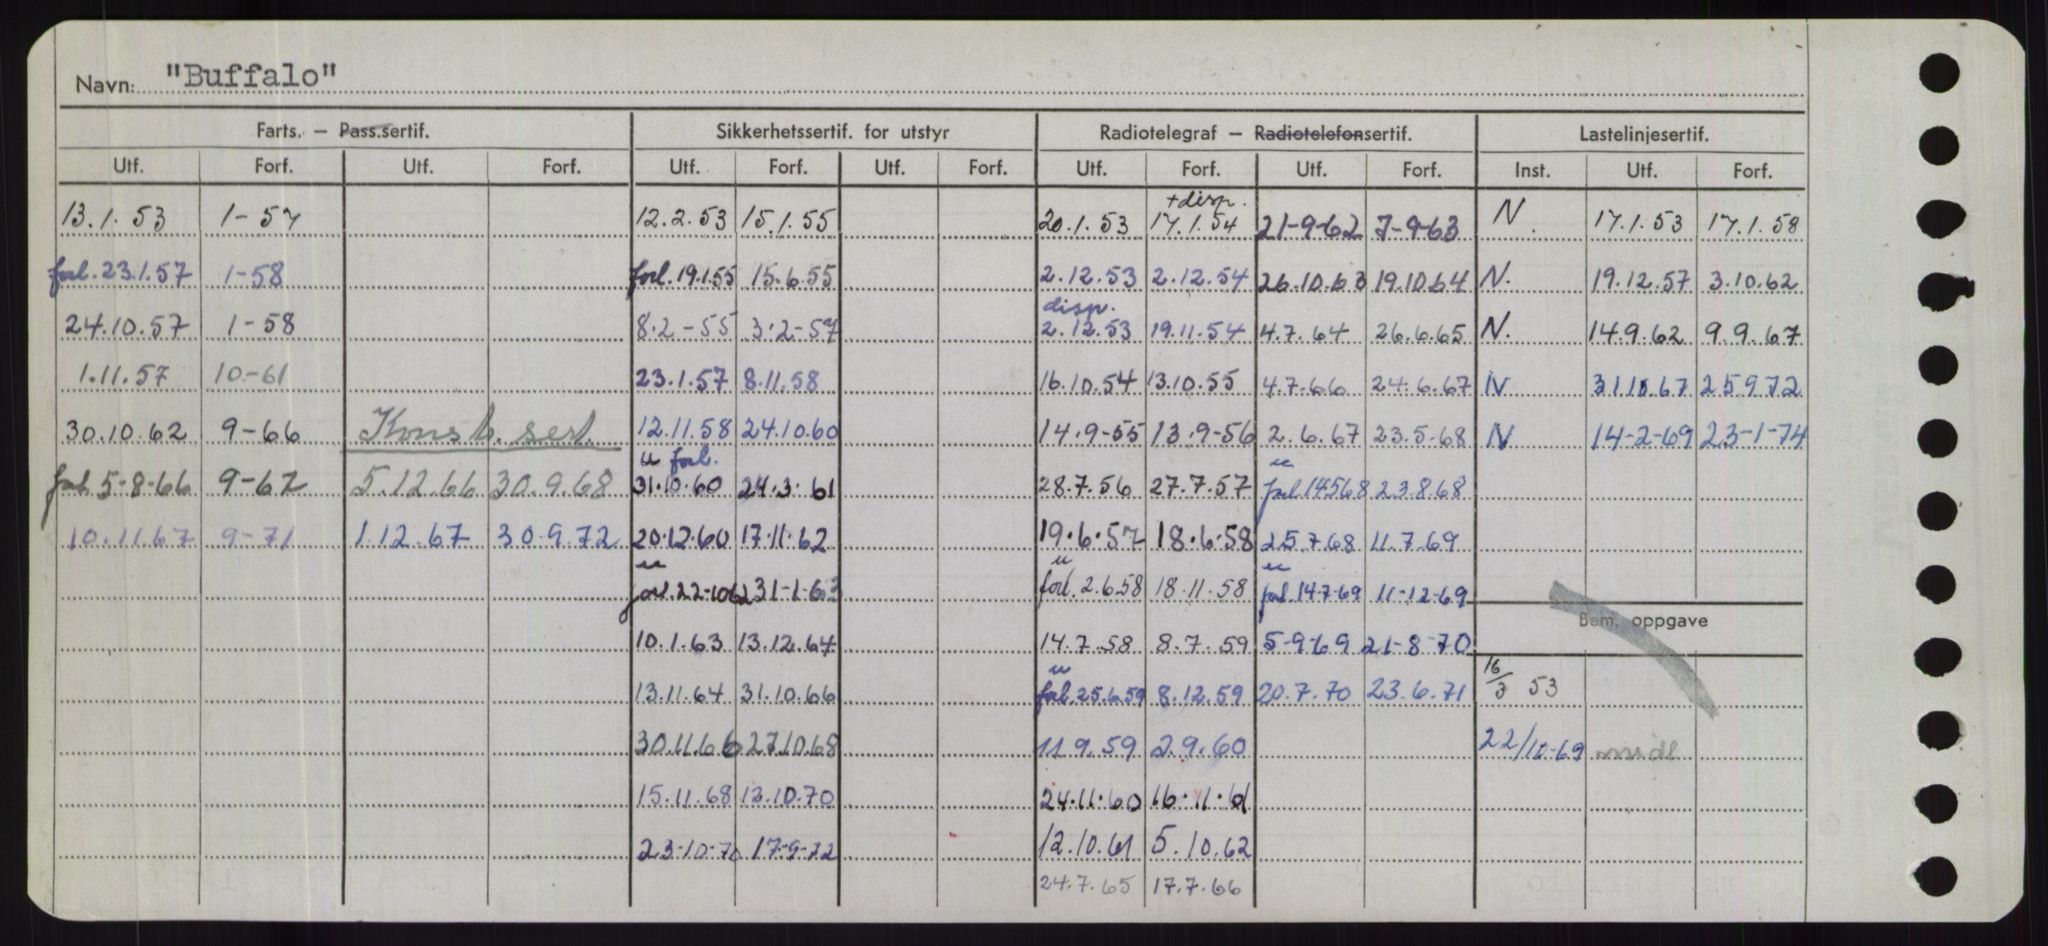 Navn: "Buffalo"
Farts. – Pass.sertif. Sikkerhetssertif. for utstyr Radiotelegraf – Radiotelefonsertif. Lastelinjesertif.
Utf. Forf. Utf. Forf. Utf. Forf. Utf. Forf. Utf. Forf. Utf. Forf. Inst. Utf. Forf.
+disp.
13.1.53 1-57 12.2.53 15.1.55 20.1.53 17.1.54 21-9-62 7-9-63 N. 17.1.53 17.1.58
forl. 23.1.57 1-58 forl. 19.1.55 15.6.55 2.12.53 2.12.54 26.10.63 19.10.64 N. 19.12.57 3.10.62
disp.
24.10.57 1-58 8.2-55 3.2-57 2.12.53 19.11.54 4.7.64 26.6.65 N. 14.9.62 9.9.67
1.11.57 10-61 23.1.57 8.11.58 16.10.54 13.10.55 4.7.66 24.6.67 N 31.10.67 25.9.72
30.10.62 9-66 Konstr. sert. 12.11.58 24.10.60 14.9-55 13.9-56 2.6.67 23.5.68 N 14-2-69 23-1-74
u forl. u
forl. 5-8-66 9-67 5.12.66 30.9.68 31.10.60 24.3.61 28.7.56 27.7.57 forl 14568 23.8.68
10.11.67 9-71 1.12.67 30.9.72 20.12.60 17.11.62 19.6.57 18.6.58 25.7.68 11.7.69
u u u
forl. 22-1062 31-1-63 forl. 2.6.58 18.11.58 forl. 14-7-69 11-12-69
Bem. oppgave
10.1.63 13.12.64 14.7.58 8.7.59 5-9-69 21-8-70
u
13.11.64 31.10.66 forl. 25.6.59 8.12.59 20.7.70 23.6.71 16/3 53
30.11.66 27.10.68 11.9.59 2.9.60 22/10-69
15.11.68 13.10.70 24.11.60 16.11.61
23-10-70 17-9-72 12.10.61 5.10.62
24.7.65 17.7.66